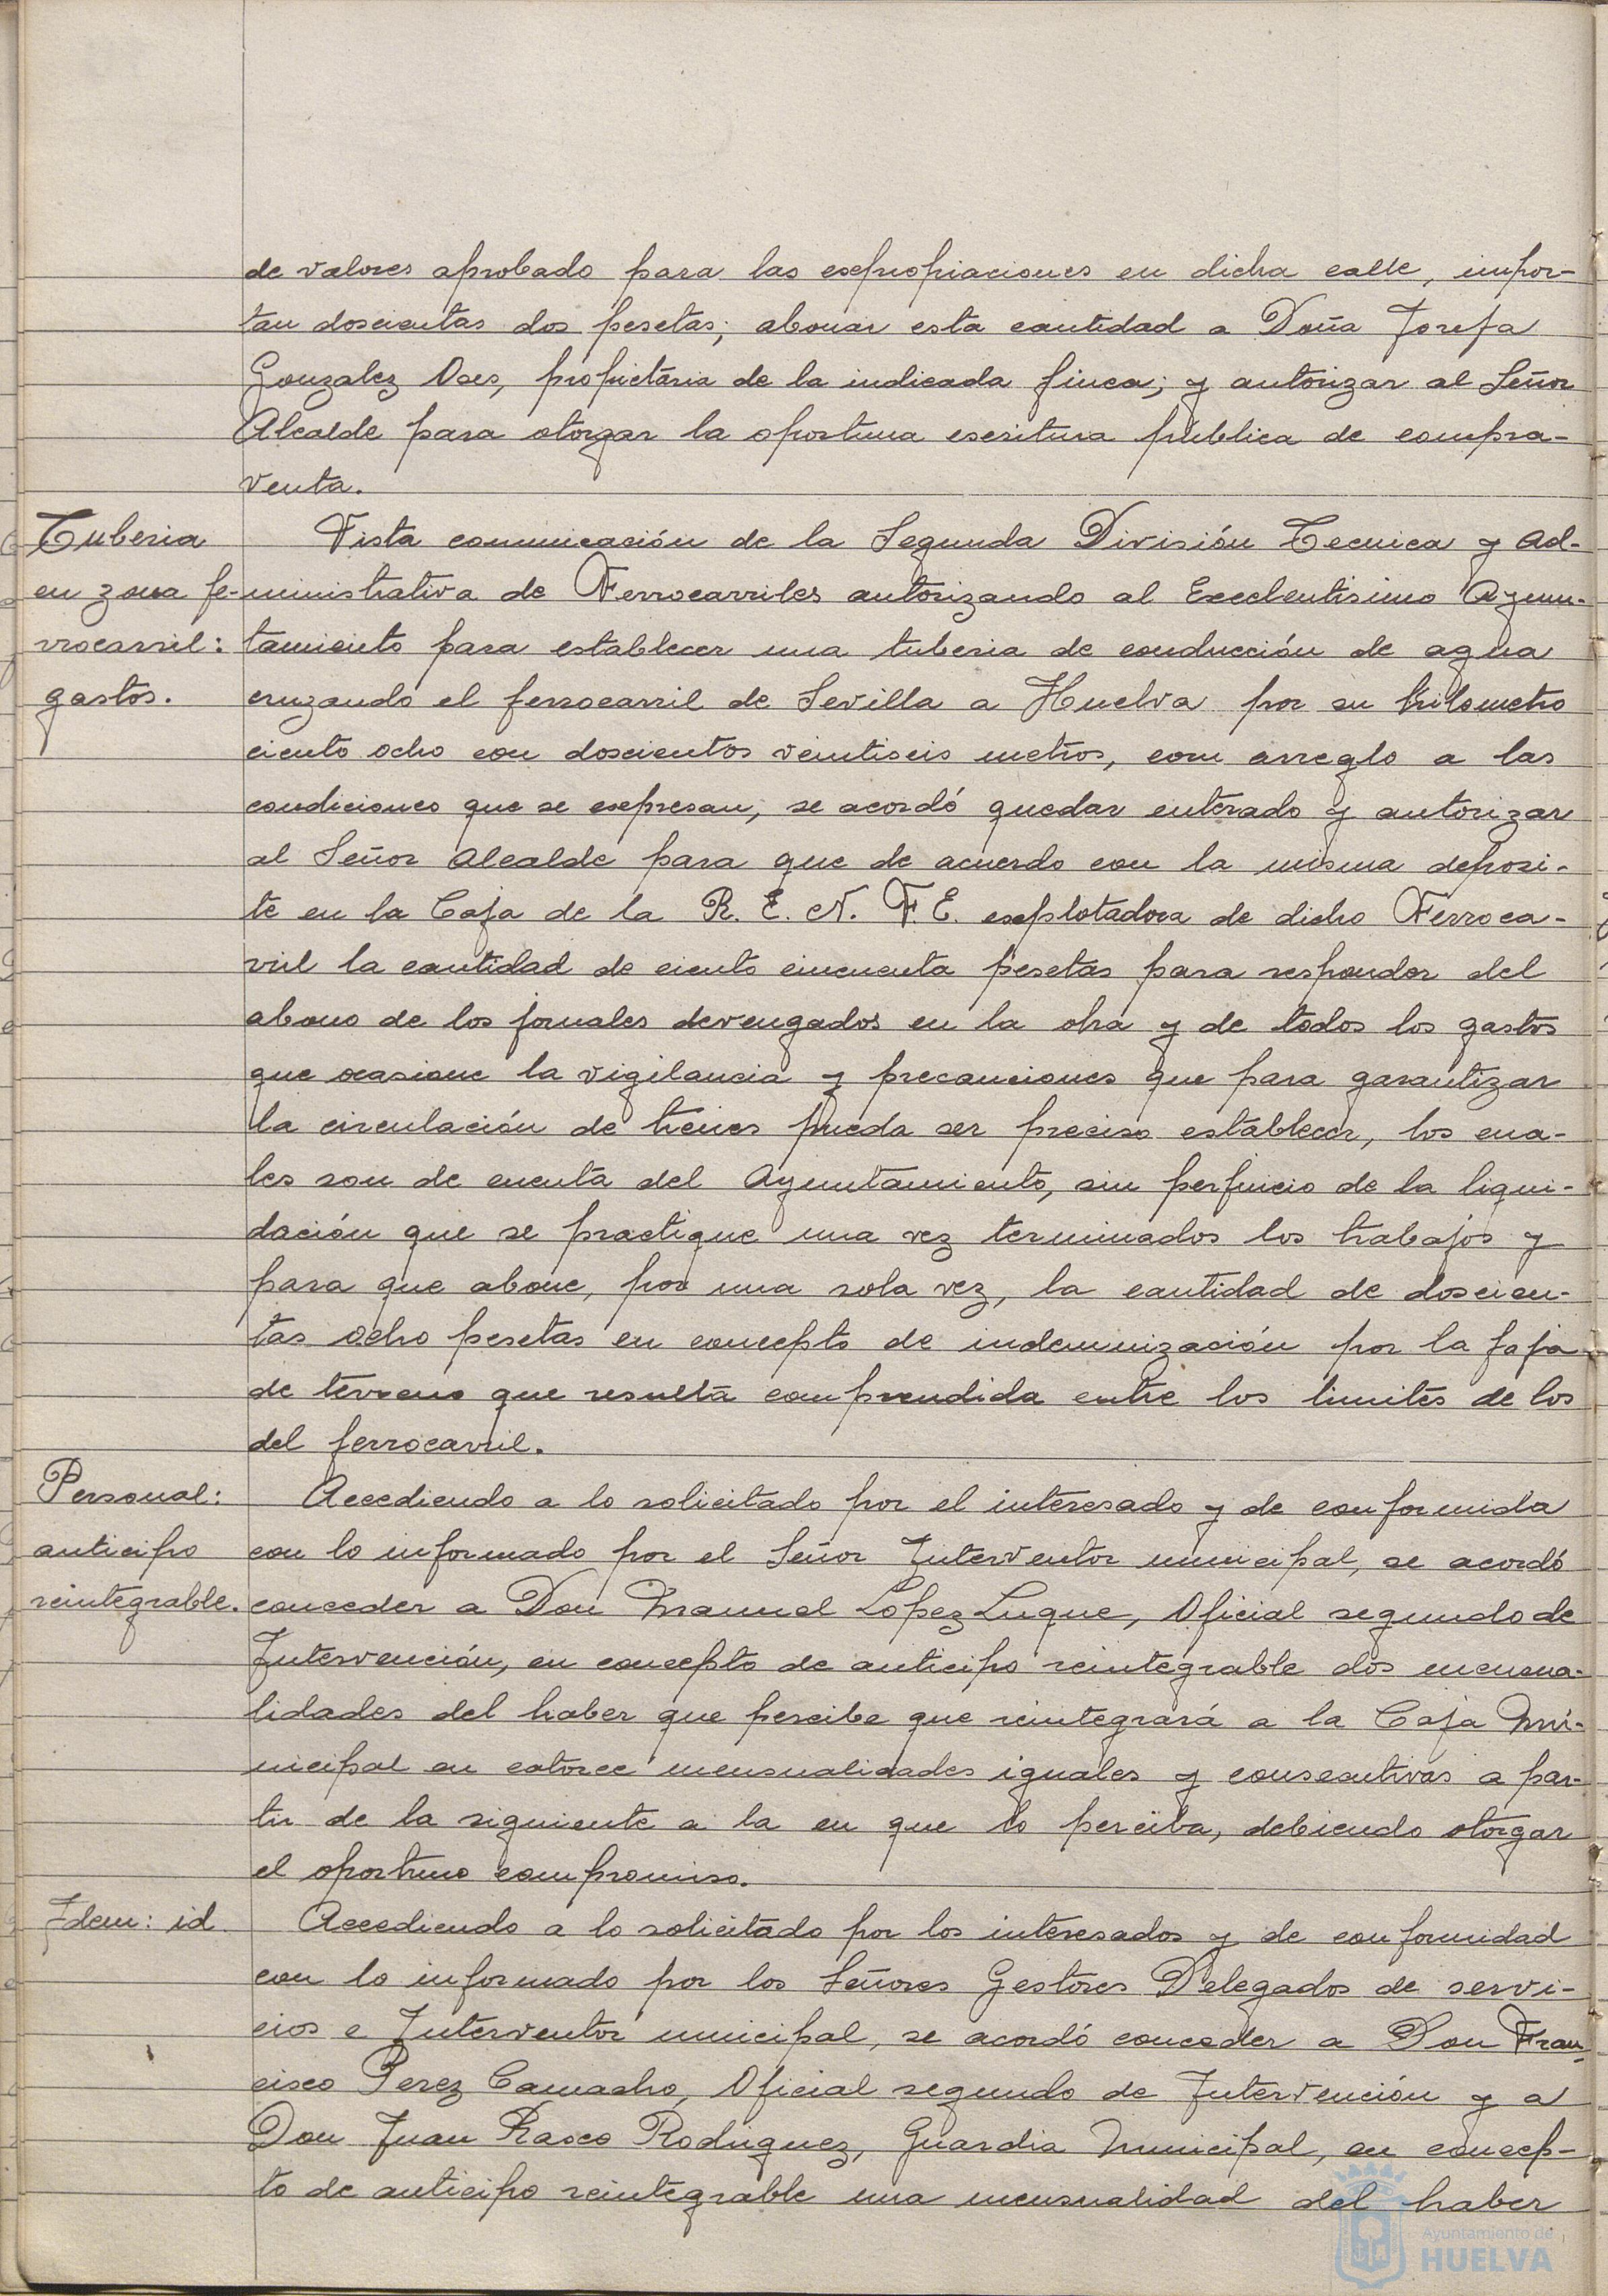 de valores aprobado para las expropiaciones en dicha calle, impor-
tan doscientas dos pesetas; abonar esta cantidad a Doña Josefa
Gonzalez Oses, propietaria de la indicada finca; y autorizar al Señor
Alcalde para otorgar la oportuna escritura pública de compra-
venta.
Tuberia
en zona fe-
rrocarril:
gastos.
Vista comunicación de la Segunda División Tecnica y Ad-
ministrativa de Ferrocarriles autorizando al Excelentisimo Ayun-
tamiento para establecer una tuberia de conducción de agua
cruzando el ferrocarril de Sevilla a Huelva por su kilometro
ciento ocho con doscientos veintiseis metros, con arreglo a las
condiciones que se expresan, se acordó quedar enterado y autorizar
al Señor Alcalde para que de acuerdo con la misma deposi-
te en la Caja de la R. E. N. F. E. explotadora de dicho Ferroca-
rril la cantidad de ciento cincuenta pesetas para responder del
abono de los jornales devengados en la obra y de todos los gastos
que ocasione la vigilancia y precauciones que para garantizar
la circulación de trenes pueda ser preciso establecer, los cua-
les son de cuenta del Ayuntamiento, sin perjuicio de la liqui-
dación que se practique una vez terminados los trabajos y
para que abone, por una sola vez, la cantidad de doscien-
tas ocho pesetas en concepto de indemnización por la faja
de terreno que resulta comprendida entre los limites de los
del ferrocarril.
Personal:
anticipo
reintegrable.
Accediendo a lo solicitado por el interesado y de conformida
con lo informado por el Señor Interventor municipal, se acordó
conceder a Don Manuel López Luque, Oficial segundo de
Intervención, en concepto de anticipo reintegrable dos mensua-
lidades del haber que percibe que reintegrará a la Caja Mu-
nicipal en catorce mensualidades iguales y consecutivas a par-
tir de la siguiente a la en que lo perciba, debiendo otorgar
el oportuno compromiso.
Idem: id.
Accediendo a lo solicitado por los interesados y de conformidad
con lo informado por los Señores Gestores Delegados de servi-
cios e Interventor municipal, se acordó conceder a Don Fran-
cisco Perez Camacho, Oficial segundo de Intervención y a
Don Juan Rasco Rodriguez, Guardia Municipal, en concep-
to de anticipo reintegrable una mensualidad del haber
Ayuntamiento de
HUELVA